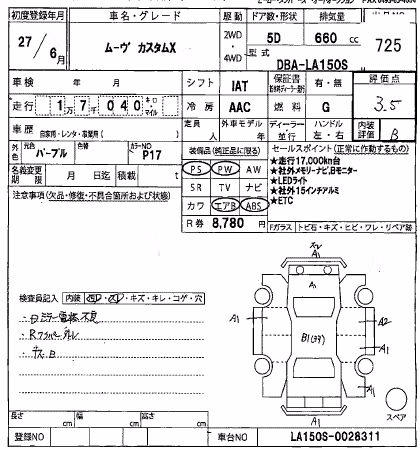 初度登録年月
車名・グレード
駆動
ドア数・形状
排気量
27/6月
ムーヴ カスタムX
2WD・4WD
5D
660 cc
725
型式
DBA-LA150S
車検 年 月
シフト
IAT
保証書
有・無
評価点
走行 1万7千040キロ・マイル
冷房
AAC
燃料
G
3.5
車歴 自家用・レンタ・営業用( )
定員 人
外車モデル 年
ディーラー・並行
ハンドル 左・右
内装評価
B
外色
元色 パープル
色替
カラーNO P17
装備品(純正品に限る)
セールスポイント(正常に作動するもの)
名義変更期限 月 日迄
積載量 t
PS PW AW
SR TV ナビ
カワ エアB ABS
★走行17,000km台
★社外メモリーナビ,Bモニター
★LEDライト
★社外15インチアルミ
★ETC
注意事項(欠品・修復・不具合箇所および状態)
R券 8,780 円
Fガラス トビ石・キズ・ヒビ・ワレ・リペア跡
A1
A1
検査員記入 内装 ・キズ・キレ・コゲ・穴
A1
B1
A2
A1
A1
A1
スペア
長さ cm
幅 cm
高さ cm
登録NO
車台NO
LA150S-0028311